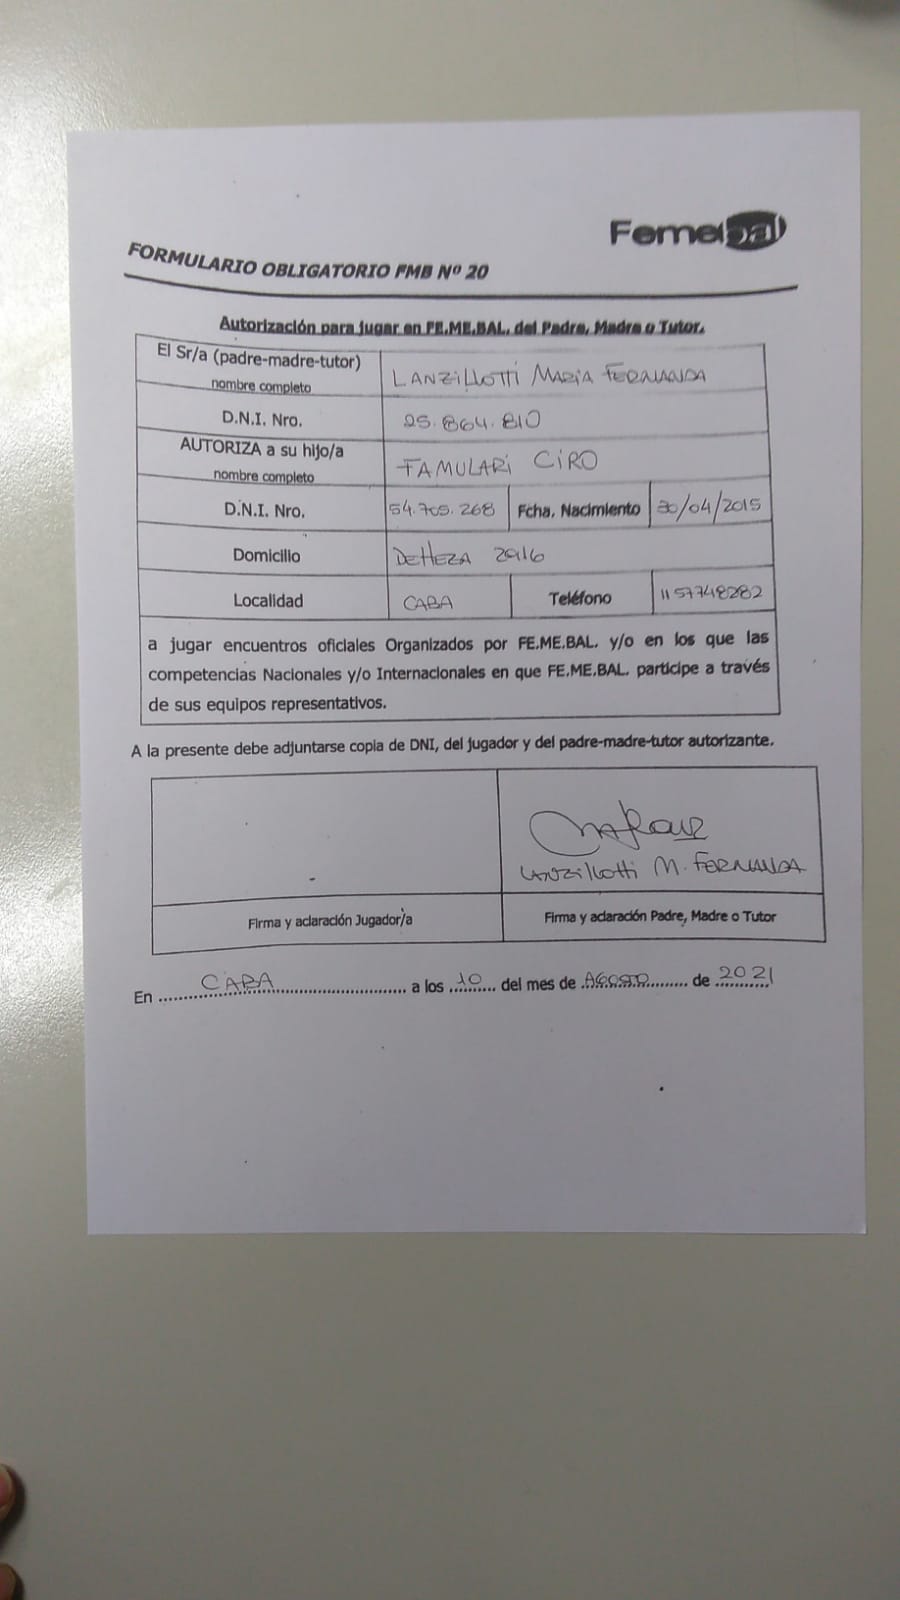 Femebal
FORMULARIO OBLIGATORIO FMB Nº 20
Autorización para jugar en FE.ME.BAL. del Padre, Madre o Tutor.
El Sr/a (padre-madre-tutor) nombre completo LANZILLOTTI MARIA FERNANDA
D.N.I. Nro. 25.864.810
AUTORIZA a su hijo/a nombre completo FAMULARI CIRO
D.N.I. Nro. 54.705.268 Fcha. Nacimiento 30/04/2015
Domicilio DEHEZA 2916
Localidad CABA Teléfono 1157748282
a jugar encuentros oficiales Organizados por FE.ME.BAL. y/o en los que las
competencias Nacionales y/o Internacionales en que FE.ME.BAL. participe a través
de sus equipos representativos.
A la presente debe adjuntarse copia de DNI, del jugador y del padre-madre-tutor autorizante.
LANZILLOTTI M. FERNANDA
Firma y aclaración Jugador/a Firma y aclaración Padre, Madre o Tutor
En CABA a los 10 del mes de AGOSTO de 2021